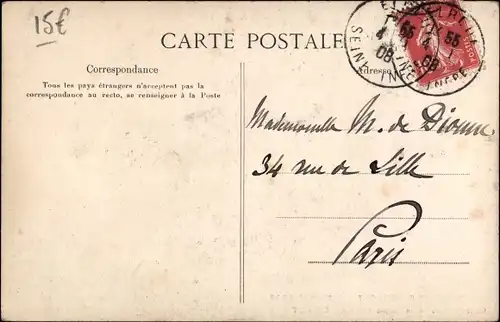 15€
CARTE POSTALE
Correspondance
Tous les pays étrangers n'acceptent pas la
correspondance au recto, se renseigner à la Poste
Adresse
Mademoiselle M. de Dionne
34 rue de Lille
Paris